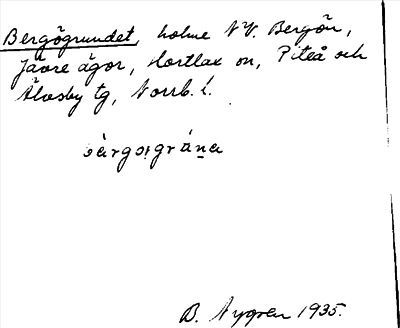 Bergögrundet, holme NV. Bergön,
Jävre ägor, Hortlax sn, Piteå och
Älvsby tg, Norrb. l.
bàrgo̩gráṉa
B. Nygren 1935.